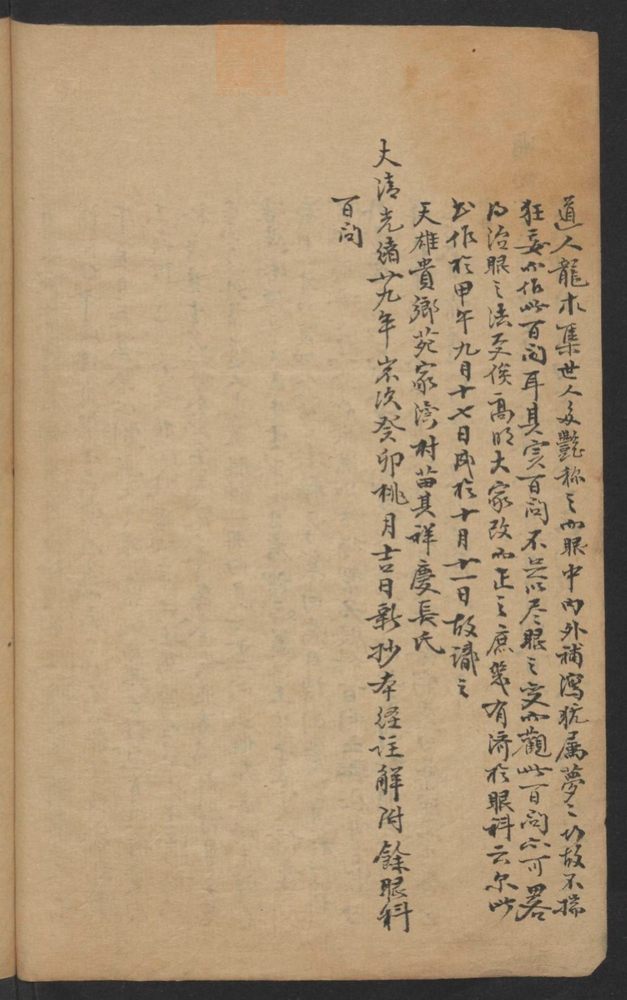 道人龍木集世人多艷称之而眼中内外補瀉犹属夢夢故不揣
狂妄而作此百问耳其实百问不足以尽眼之变而觀此百问亦可畧
为治眼之法更俟高明大家改而正之庶幾有済於眼科云尔此
书作於甲午九月十七日成於十月十一日故識之
天雄貴鄉苑家湾村苗其祥慶長氏
大清光绪廿九年岁次癸卯桃月吉日新抄本经註解附餘眼科
百问